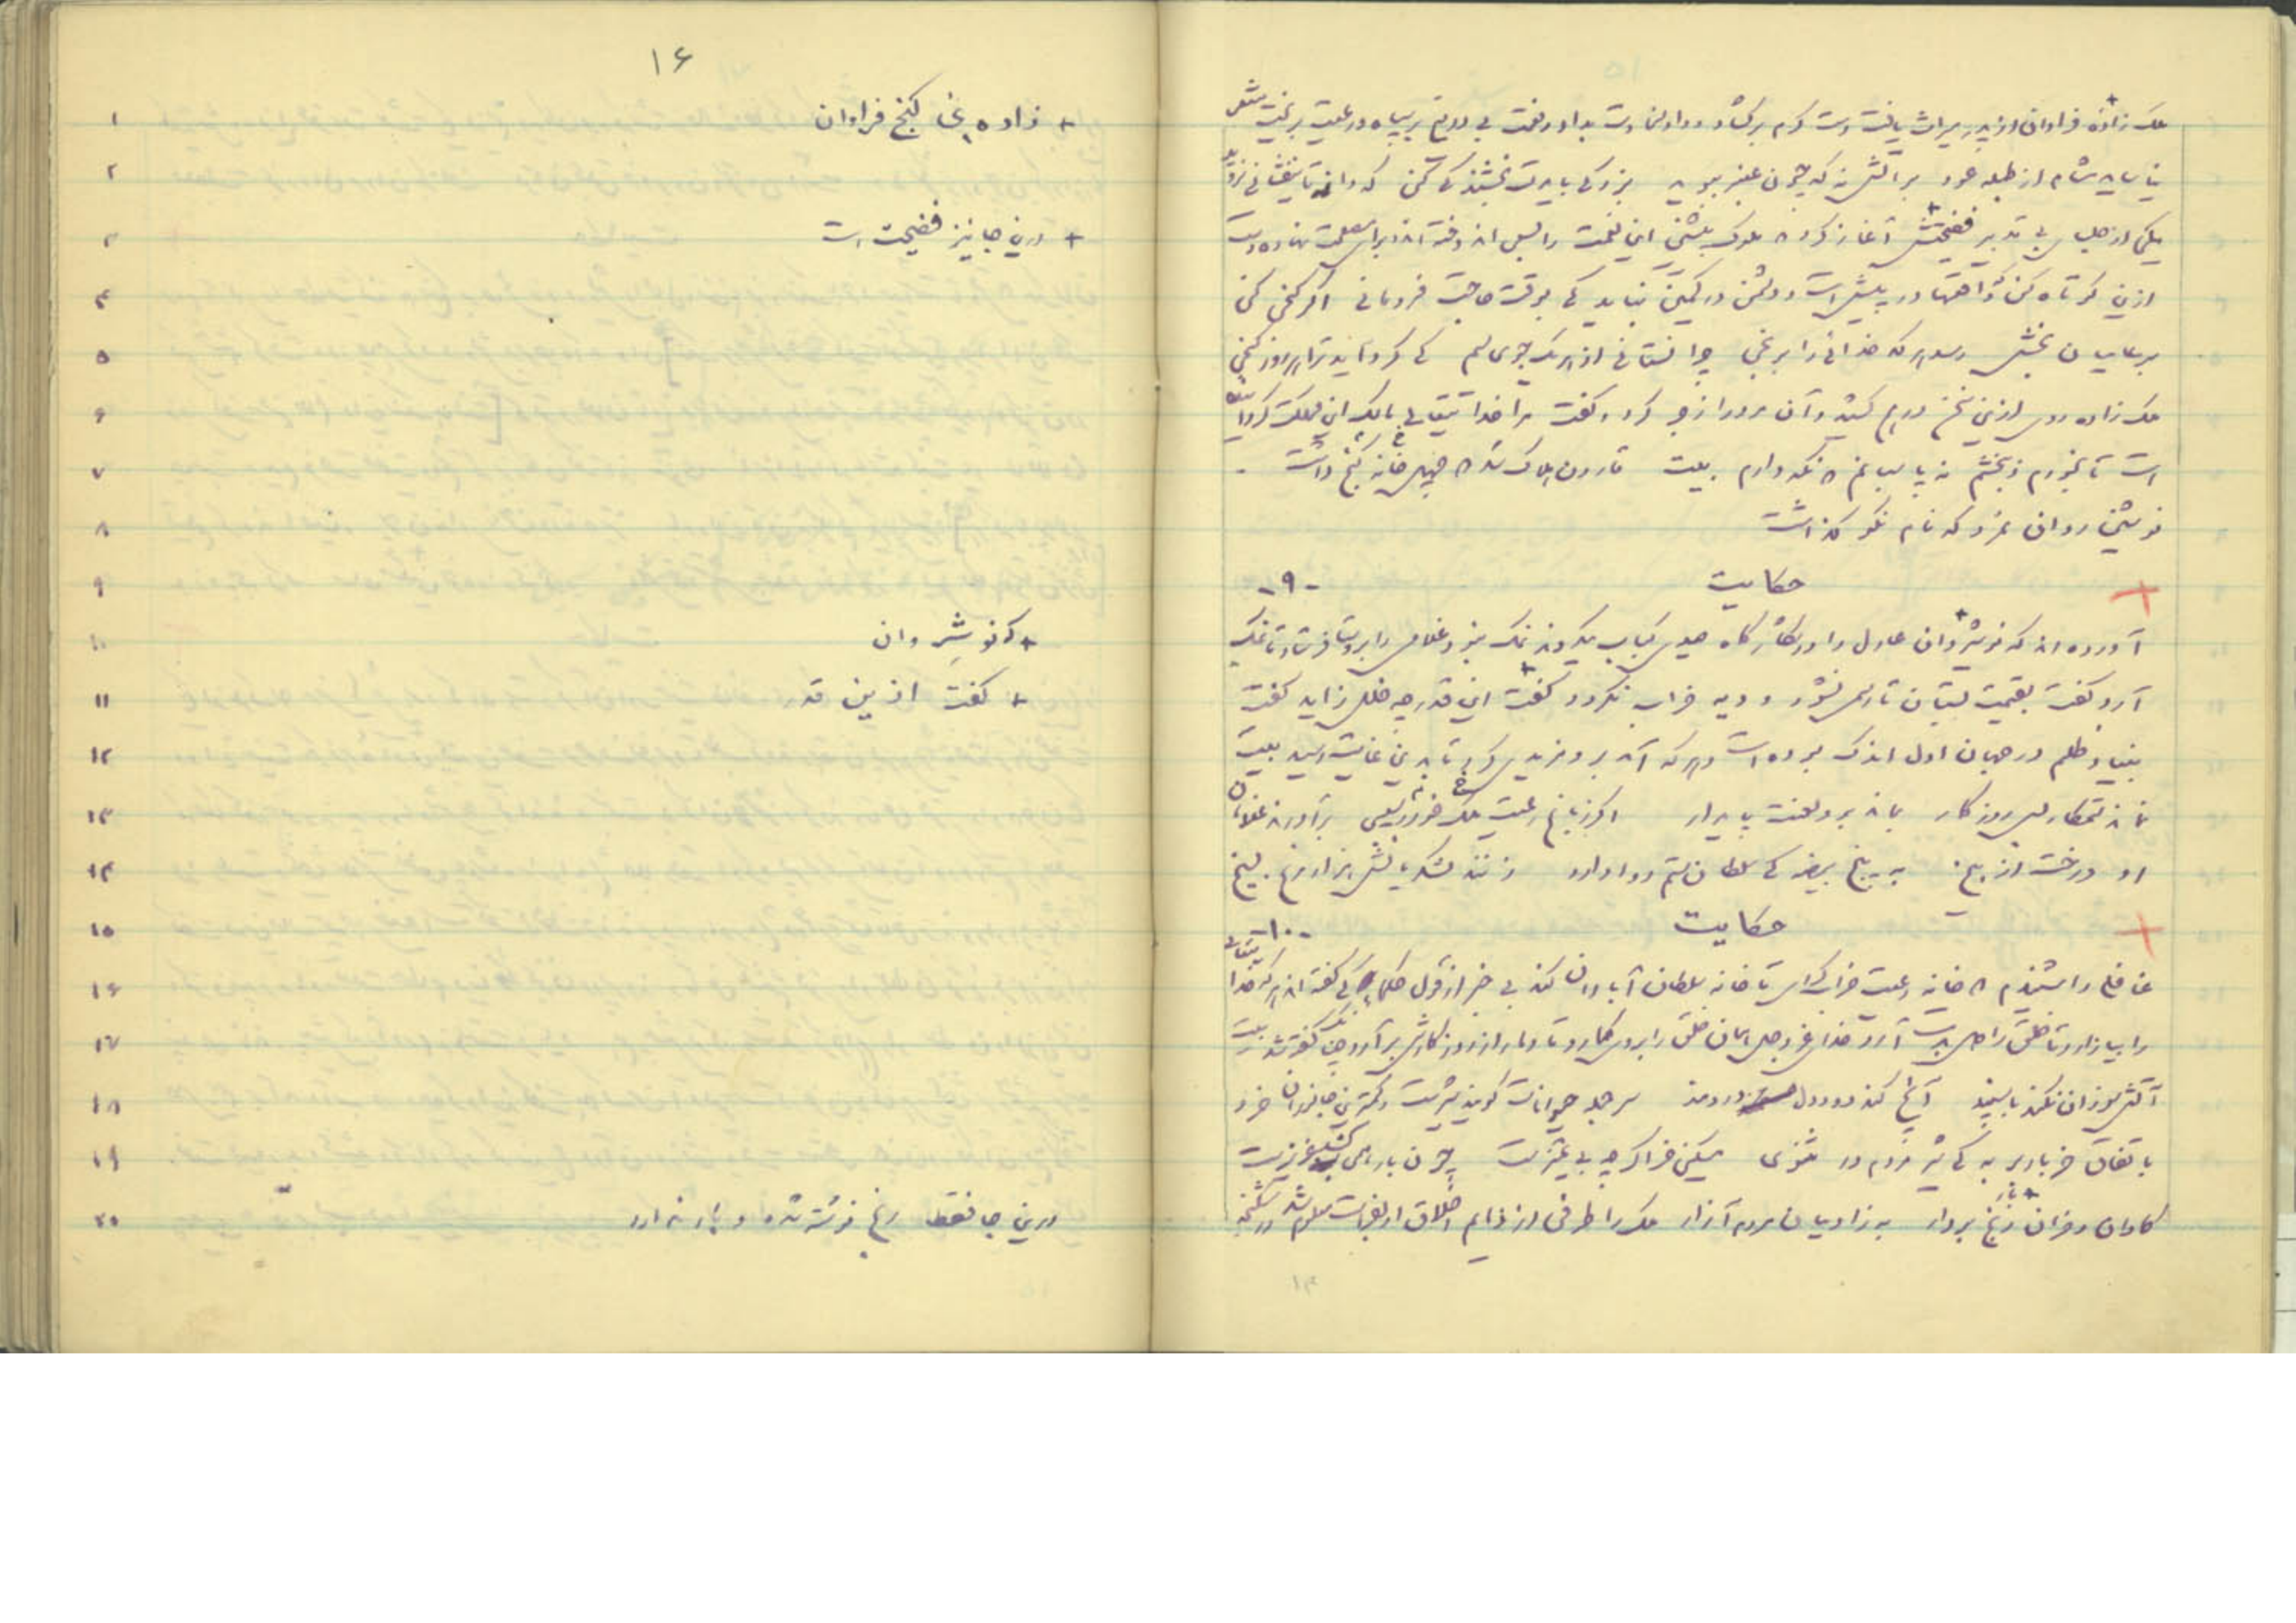 ملک زاده فراوان از پدر میراث یافت دست کرم برگشاد و داد سخاوت بداد و نعمت بی دریغ بر سپاه و رعیت بریخت شعر
نیاساید مشام از طبله عود بر آتش نه که چون عنبر ببوید بزرگی بایدت بخشندگی کن که دانه تا نیفشانی نروید
یکی از جلسای بی تدبیر نصیحتش آغاز کرد که ملوک پیشین این نعمت را بسعی اندوخته اند و برای مصلحت نهاده دست
ازین کوتاه کن که واقعها در پیش است و دشمن در کمین نباید که بوقت حاجت فرومانی اگر گنجی کنی
بر عامیان بخش رسد هر کدخدائی را برنجی چرا نستانی از هر یک جوی سیم که گرد آید ترا هر روز گنجی
ملک زاده روی ازین سخن درهم کشید و آن مرد را زجر کرد و گفت مرا خدا تعالی مالک این مملکت گردانیده
است تا بخورم و ببخشم نه پاسبانم که نگه دارم بیت قارون هلاک شد که چهل خانه گنج داشت
نوشین روان نمرد که نام نکو گذاشت
حکایت -۹-
آورده اند که نوشیروان عادل را در شکارگاه صیدی کباب میکردند نمک نبود غلامی را بروستا فرستاد تا نمک
آرد گفت بقیمت بستان تا رسم نشود و دیه خراب نگردد گفت این قدر چه خلل زاید گفت
بنیاد ظلم در جهان اول اندک بوده است و هر که آمد برو مزیدی کرد تا بدین غایت رسید بیت
نماند ستمکار بد روزگار بماند برو لعنت پایدار اگر ز باغ رعیت ملک خورد سیبی برآورند غلامان
او درخت از بیخ به پنج بیضه که سلطان ستم روا دارد زنند لشکریانش هزار مرغ بسیخ
حکایت -۱۰-
غافلی را شنیدم که خانه رعیت خراب کردی تا خانه سلطان آبادان کند بی خبر از قول حکما که گفته اند هر که خدا تعالی
را بیازارد تا خلقی را بدست آرد خدای عز و جل همان خلق را برو گمارد تا دمار از روزگارش برآرد چنانکه گفته شد بیت
آتش سوزان نکند با سپند آنچ کند دود دل دردمند سر جمله حیوانات گویند شیرست و کمترین جانوران خر و
باتفاق خر باربر به که شیر مردم در مثنوی مسکین خر اگر چه بی تمیزست چون بار همی کشد عزیزست
گاوان و خران رنج بردار به ز آدمیان مردم آزار ملک را طرفی از ذمایم اخلاق او بفراست معلوم شد در شکنجه
۱۴
۱۶
۱ + زاده‌ی غا گنج فراوان
۲
۳ + درین جا نیز فضیحت است
۴
۵
۶
۷
۸
۹
۱۰ + که نوشِروان
۱۱ + گفت ازین قدر
۱۲
۱۳
۱۴
۱۵
۱۶
۱۷
۱۸
۱۹
۲۰ درین جا فقط رنج نوشته شده و بار ندارد